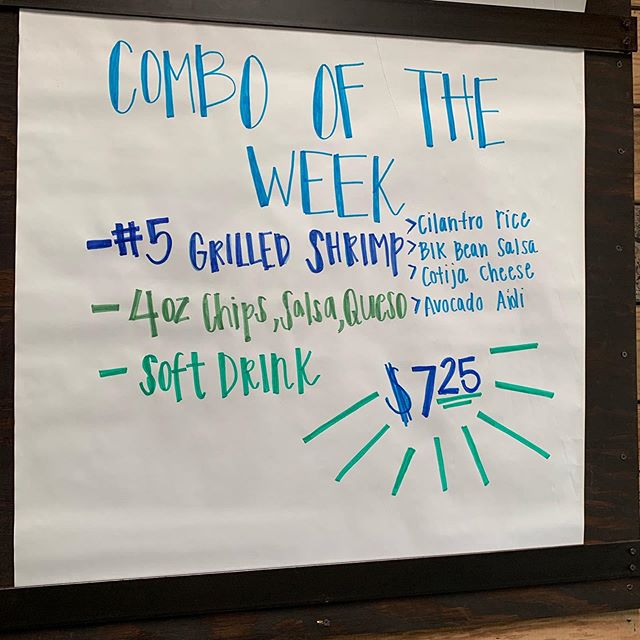 COMBO OF THE
WEEK
-#5 GRILLED SHRIMP
>Cilantro rice
>Blk Bean Salsa
>Cotija Cheese
>Avocado Aioli
- 4oz Chips, Salsa, Queso
- Soft DRINK
$7.25